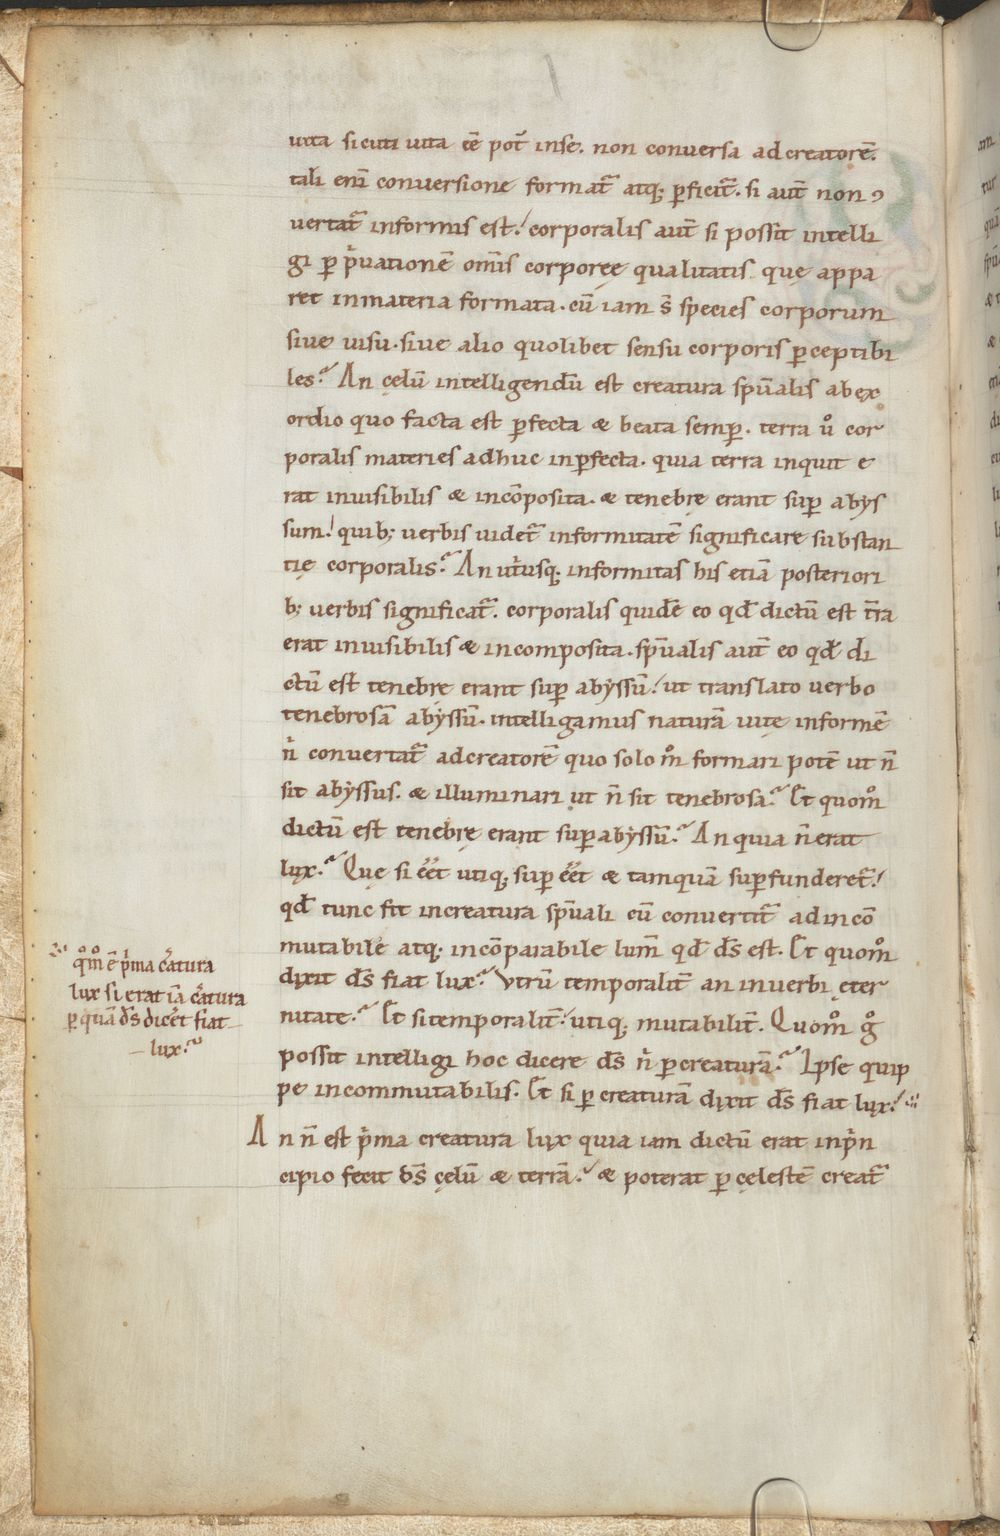 uita sicuti uita eē pot̄ inse. non conuersa adcreatorē.
tali enī conuersione format̄ atq; ꝑficit̄. si aut̄ non ꝯ
uertat̄ informis est! corporalis aut̄ si possit intelli
gi ꝑ pͥuationē omīs corporeę qualitatis quę appa
ret inmateria formata. cū iam s̄ species corporum
siue uisu. siue alio quolibet sensu corporis ꝑceptibi
les? An cęlū intelligendū est creatura spūalis abex
ordio quo facta est ꝑfecta & beata semꝑ. terra ů cor
poralis materies adhuc inꝑfecta. quia terra inquit e
rat inuisibilis & incōposita. & tenebrę erant suꝑ abys
sum! quib; uerbis uidet̄ informitatē significare substan
tię corporalis? An ut̍usq; informitas his etiā posteriori
b; uerbis significat̄. corporalis quidē eo qđ dictū est t̄ra
erat inuisibilis & incomposita. spūalis aut̄ eo qđ di
ctū est tenebrę erant suꝑ abyssū! ut translato uerbo
tenebrosā abyssū. intelligamus naturā uitę informē
nͥ conuertat̄ adcreatorē quo solo m̊ formari potē ut n̄
sit abyssus. & illuminari ut n̄ sit tenebrosa? Et quom̊
dictū est tenebrę erant suꝑabyssū? An quia n̄ erat
lux? Quę si eēt utiq; suꝑ eēt & tamquā suꝑfunderet̄!
qđ tunc fit increatura spūali cū conuertit̄ ad incō
mutabile atq; incōparabile lum̄ qđ ds̄ est. Et quom̊
dixit ds̄ fiat lux? Vtrū temporalit̄ an inuerbi ęter
nitate? Et si temporalit̄! utiq; mutabilit̄. Quom̊ g̊
possit intelligi hoc dicere ds̄ nͥ ꝑcreaturā? Ipse quip
pe incommutabilis. Et si ꝑ creaturā dixit ds̄ fiat lux!
q̊m̊ ē pͥma c̄atura
lux si erat iā c̄atura
ꝑquā ds̄ dicet̍ fiat
lux?
An n̄ est pͥma creatura lux quia iam dictū erat inpͥn
cipio fecit ds̄ cęlū & terrā? & poterat ꝑ cęlestē creat̄